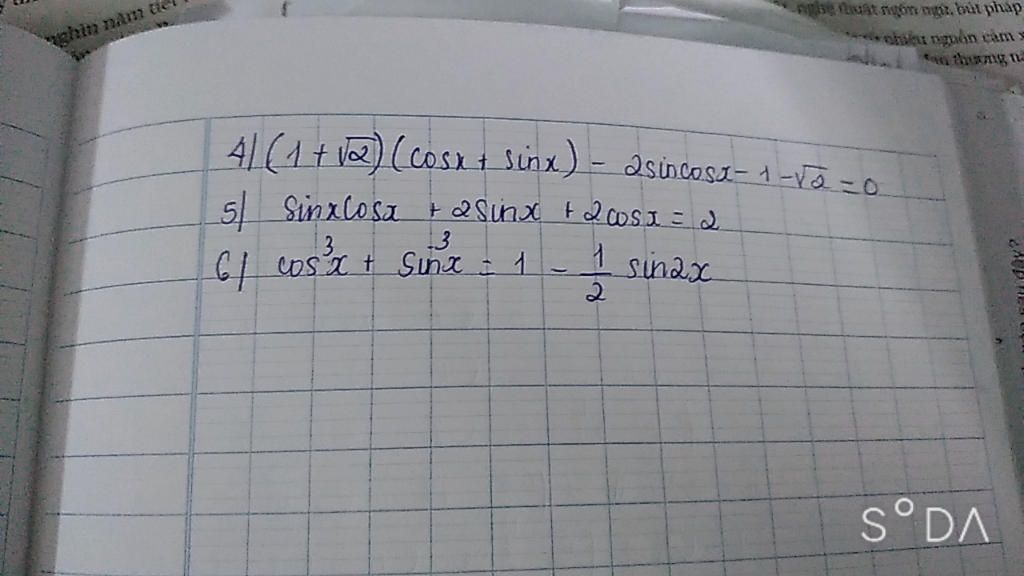 nghìn năm tiết
nghệ thuật ngôn ngữ, bút pháp
nhiều nguồn cảm x
4) (1 + √2) (cosx + sinx) - 2sincosx - 1 - √2 = 0
5) sinxcosx + 2sinx + 2cosx = 2
6) cos³x + sin³x = 1 - 1/2 sin2x
S°DA